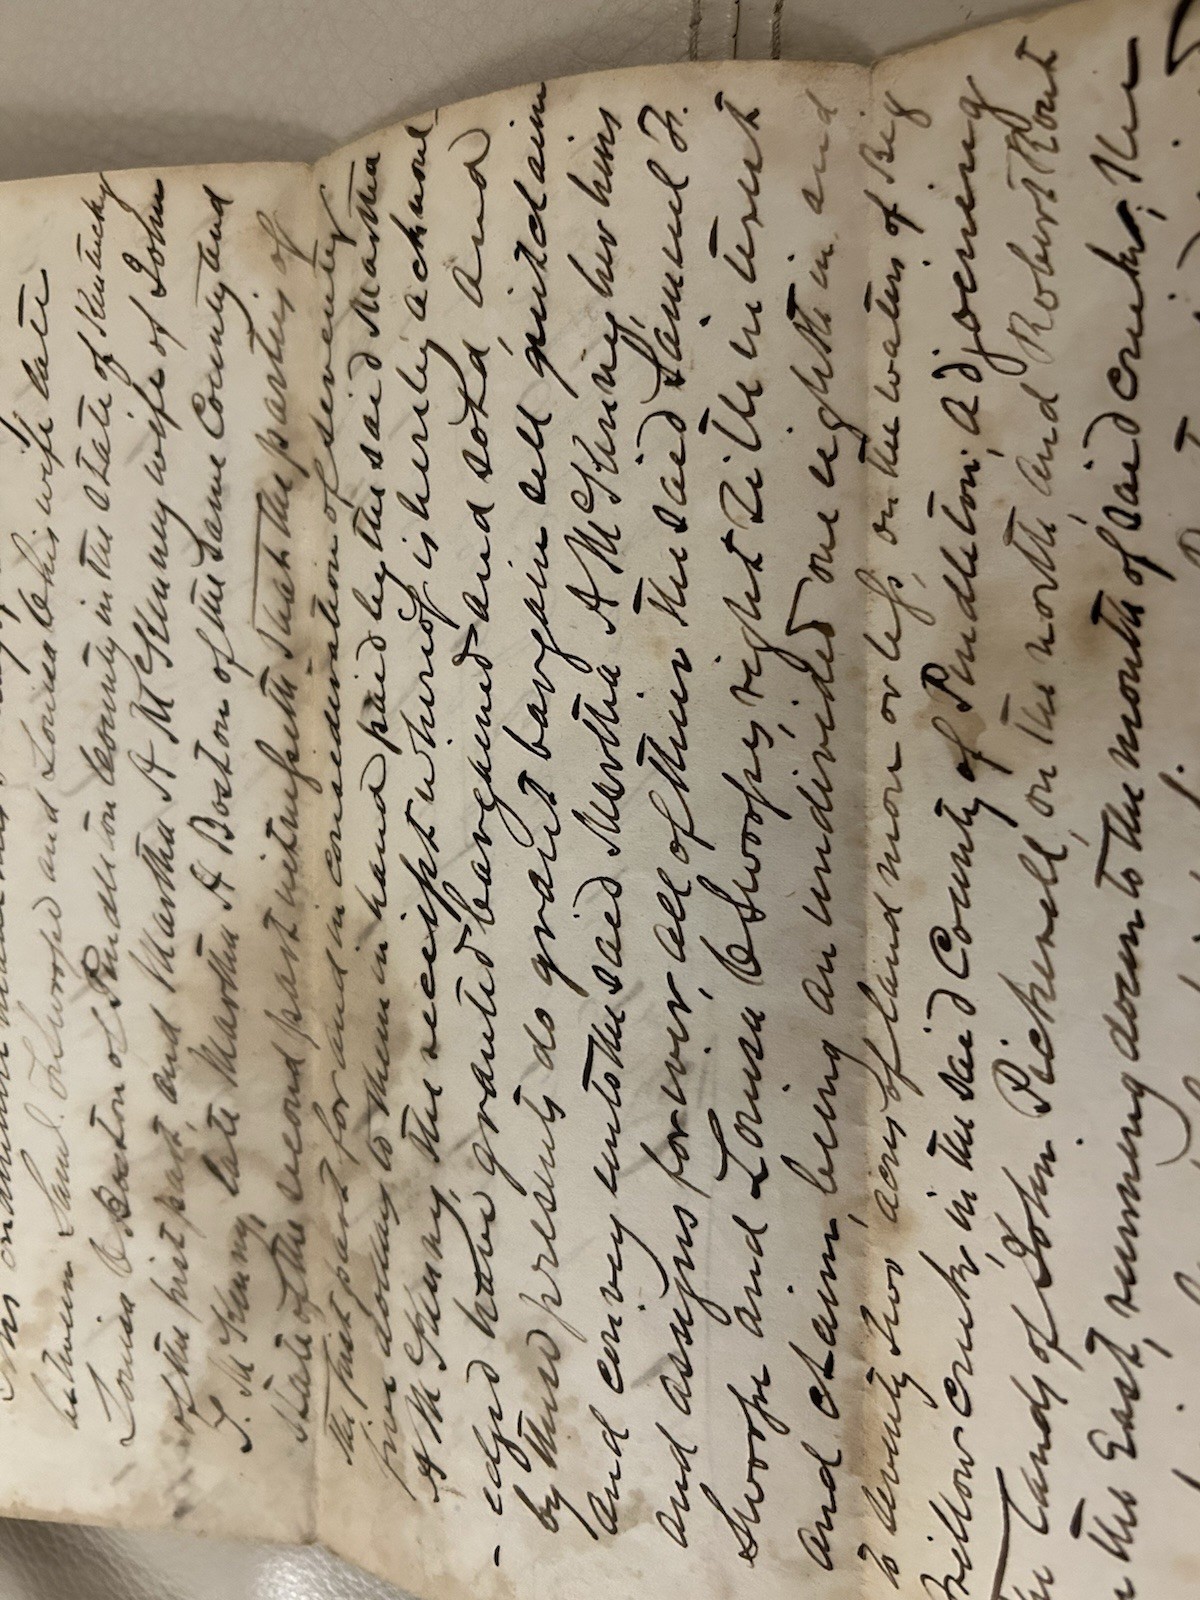 This indenture made
between Saml. F. Swoope and Louisa C his wife late
Louisa C Boston of Pendleton County in the State of Kentucky
of the first part, and Martha A McKenny wife of John
T. McKenny, late Martha A Boston of the same County and
State of the second part witnesseth That the parties of
the first part for and in consideration of seventy
five dollars to them in hand paid by the said Martha
A McKenny, the receipt whereof is hereby acknowl
-edged have granted bargained and sold, and
by these presents do grant bargain sell quitclaim
and convey unto the said Martha A McKenny, her heirs
and assigns forever, all of their the said Samuel F.
Swoope and Louisa C Swoopes, right title interest
and claim, being an undivided one eighth in and
to seventy two acres of land more or less, on the waters of Big
Willow Creek, in the said County of Pendleton, adjoening
the lands of John Pickerell, on the north and Robert Rout
on the East, running down to the mouth of said creek, the